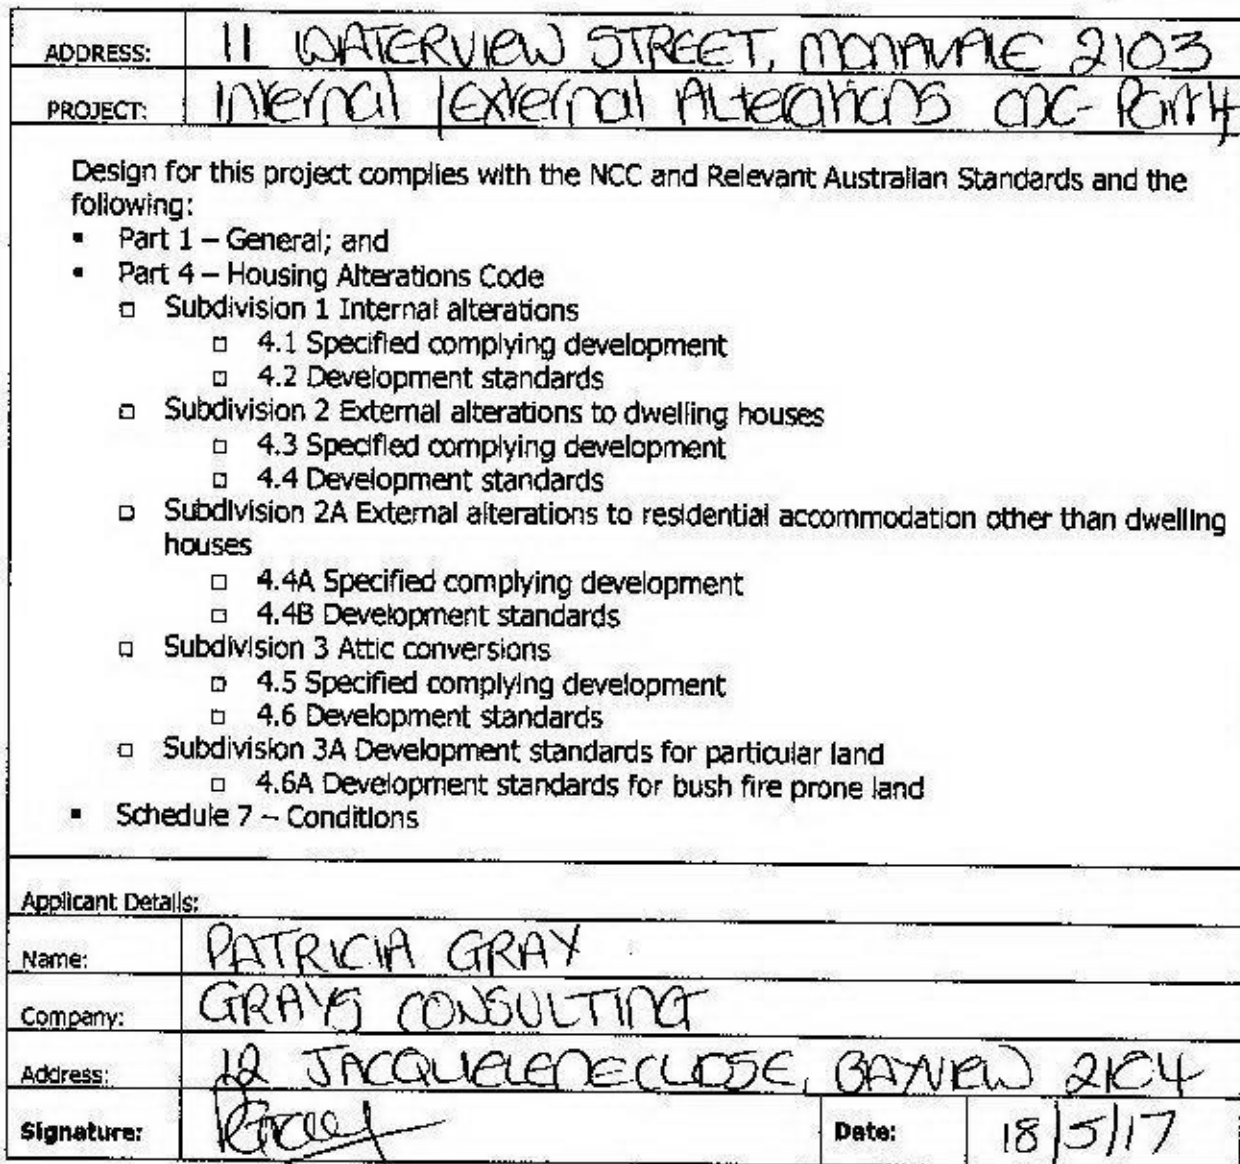 ADDRESS: 11 WATERVIEW STREET, MONAVALE 2103
PROJECT: Internal / External Alterations CDC- Part 4
Design for this project complies with the NCC and Relevant Australian Standards and the
following:
▪ Part 1 – General; and
▪ Part 4 – Housing Alterations Code
□ Subdivision 1 Internal alterations
□ 4.1 Specified complying development
□ 4.2 Development standards
□ Subdivision 2 External alterations to dwelling houses
□ 4.3 Specified complying development
□ 4.4 Development standards
□ Subdivision 2A External alterations to residential accommodation other than dwelling
houses
□ 4.4A Specified complying development
□ 4.4B Development standards
□ Subdivision 3 Attic conversions
□ 4.5 Specified complying development
□ 4.6 Development standards
□ Subdivision 3A Development standards for particular land
□ 4.6A Development standards for bush fire prone land
▪ Schedule 7 – Conditions
Applicant Details:
Name: PATRICIA GRAY
Company: GRAYS CONSULTING
Address: 12 JACQUELENE CLOSE, BAYVIEW 2104
Signature: PGray Date: 18/5/17